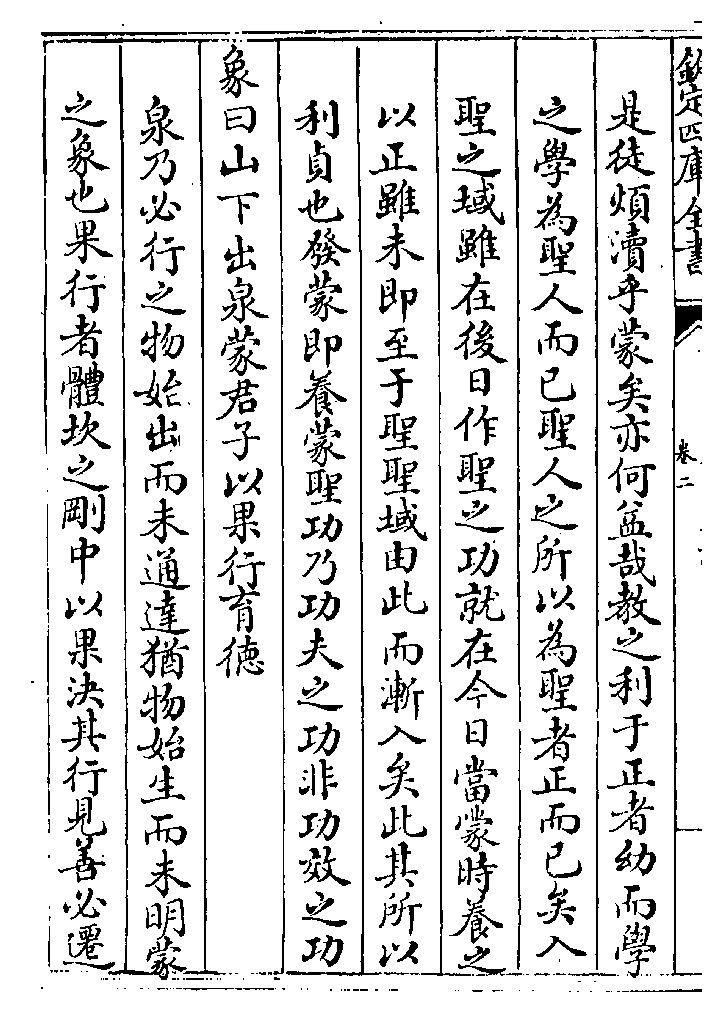 欽定四庫全書
卷二
是徒煩瀆乎蒙矣亦何益哉教之利于正者幼而學
之學為聖人而已聖人之所以為聖者正而已矣入
聖之域雖在後日作聖之功就在今日當蒙時養之
以正雖未即至于聖聖域由此而漸入矣此其所以
利貞也發蒙即養蒙聖功乃功夫之功非功效之功
象曰山下出泉蒙君子以果行育德
泉乃必行之物始出而未通達猶物始生而未明蒙
之象也果行者體坎之剛中以果決其行見善必遷